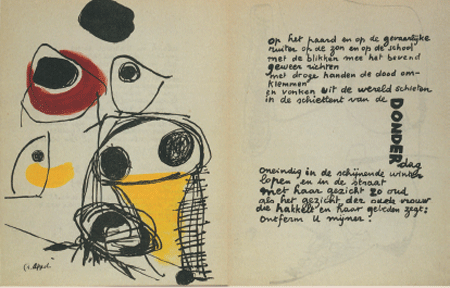 op het paard en op de gevaarlijke
ruiter op de zon en op de school
met de blikken mee het bevend
geweer richten
met droge handen de dood om-
klemmen
en vonken uit de wereld schieten
in de schiettent van de
DONDER
dag
oneindig in de schijnende winter
lopen en in de straat
met haar gezicht zo oud
als het gezicht der oude vrouw
die hakkelt en haar geleden zegt:
ontferm U mijner!